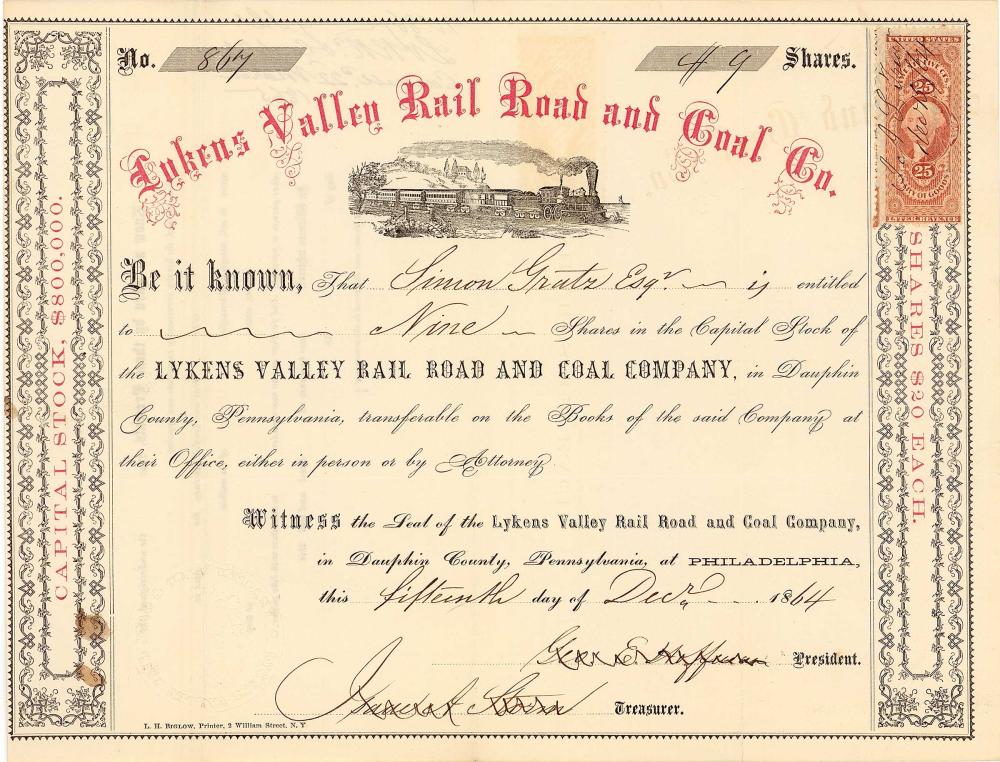 No. 867 # 9 Shares.
Lykens Valley Rail Road and Coal Co.
UNITED STATES
25
25
INTER. REVENUE
CAPITAL STOCK, $800,000.
SHARES $20 EACH.
Be it known, That Simon Gratz Esqr is entitled
to Nine Shares in the Capital Stock of
the LYKENS VALLEY RAIL ROAD AND COAL COMPANY, in Dauphin
County, Pennsylvania, transferable on the Books of the said Company at
their Office, either in person or by Attorney.
Witness the Seal of the Lykens Valley Rail Road and Coal Company,
in Dauphin County, Pennsylvania, at PHILADELPHIA,
this fifteenth day of Decr 1864
President.
Treasurer.
L. H. BIGLOW, Printer, 2 William Street, N. Y